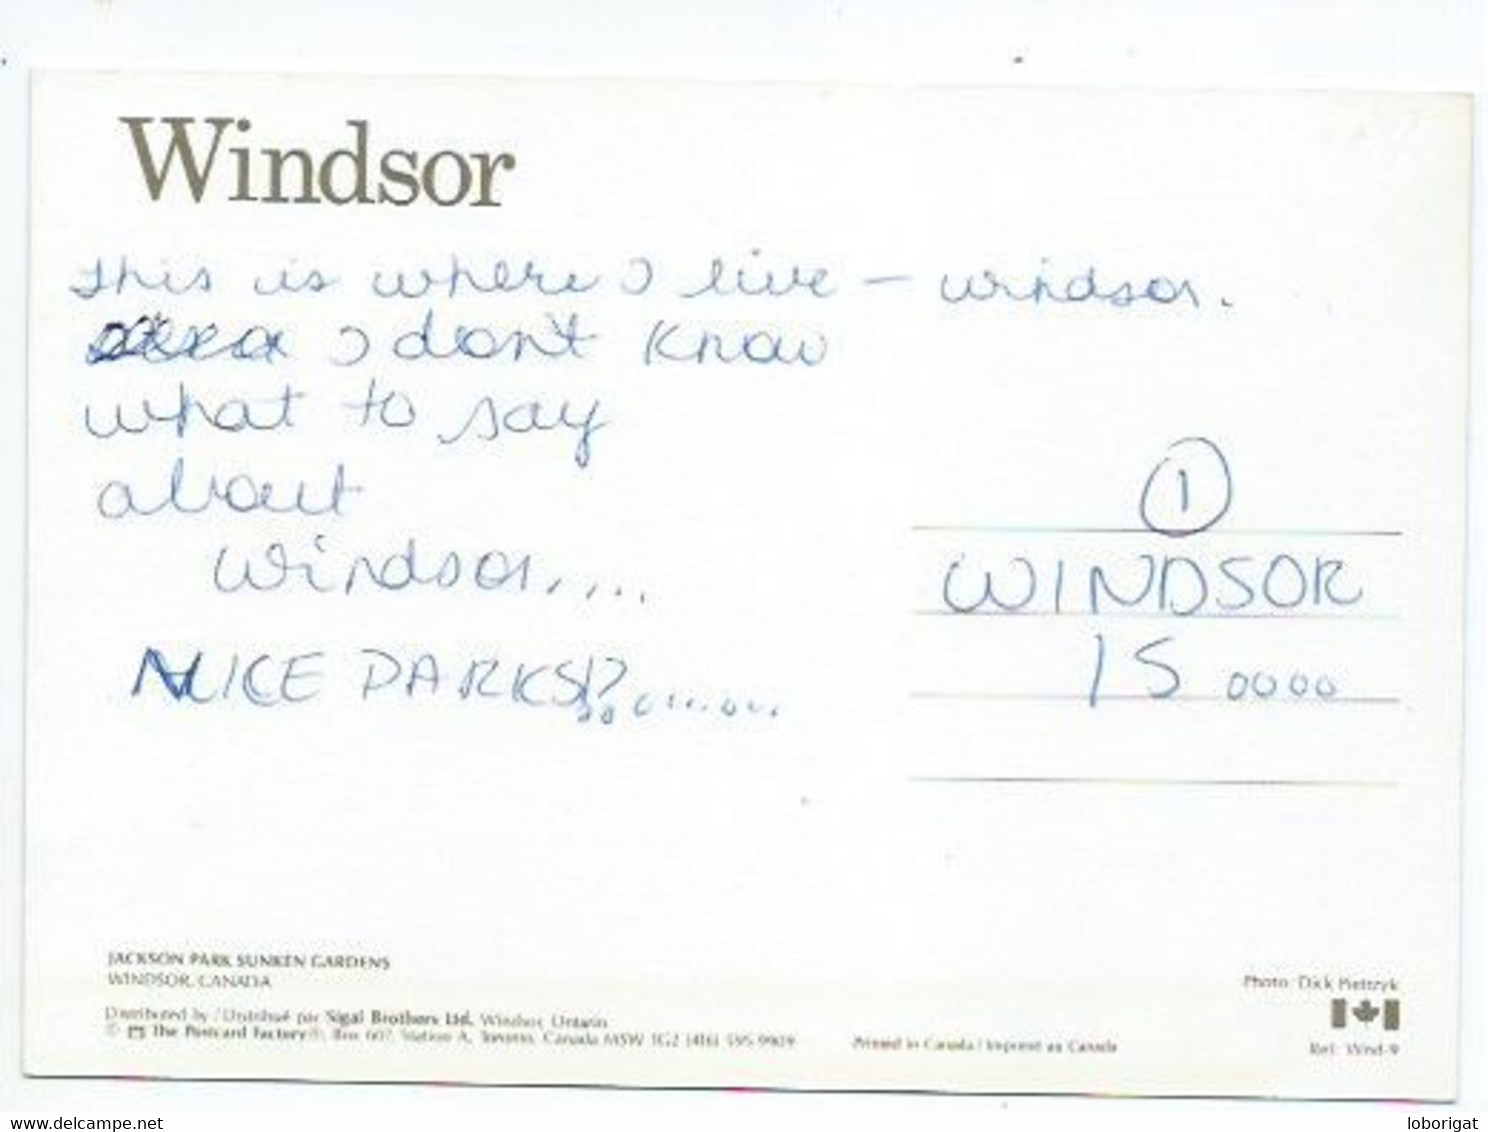 Windsor
this is where I live – windsor.
I don't know
what to say
about
windsor....
NICE PARKS!?.........
1
WINDSOR
IS oooo
JACKSON PARK SUNKEN GARDENS
WINDSOR, CANADA
Distributed by / Distribué par Sigal Brothers Ltd. Windsor, Ontario
© The Postcard Factory®, Box 607, Station A, Toronto, Canada M5W 1G2 (416) 595-9909
Printed in Canada / Imprimé au Canada
Photo: Dick Pietrzyk
Ref: Wind-9
www.delcampe.net
loborigat